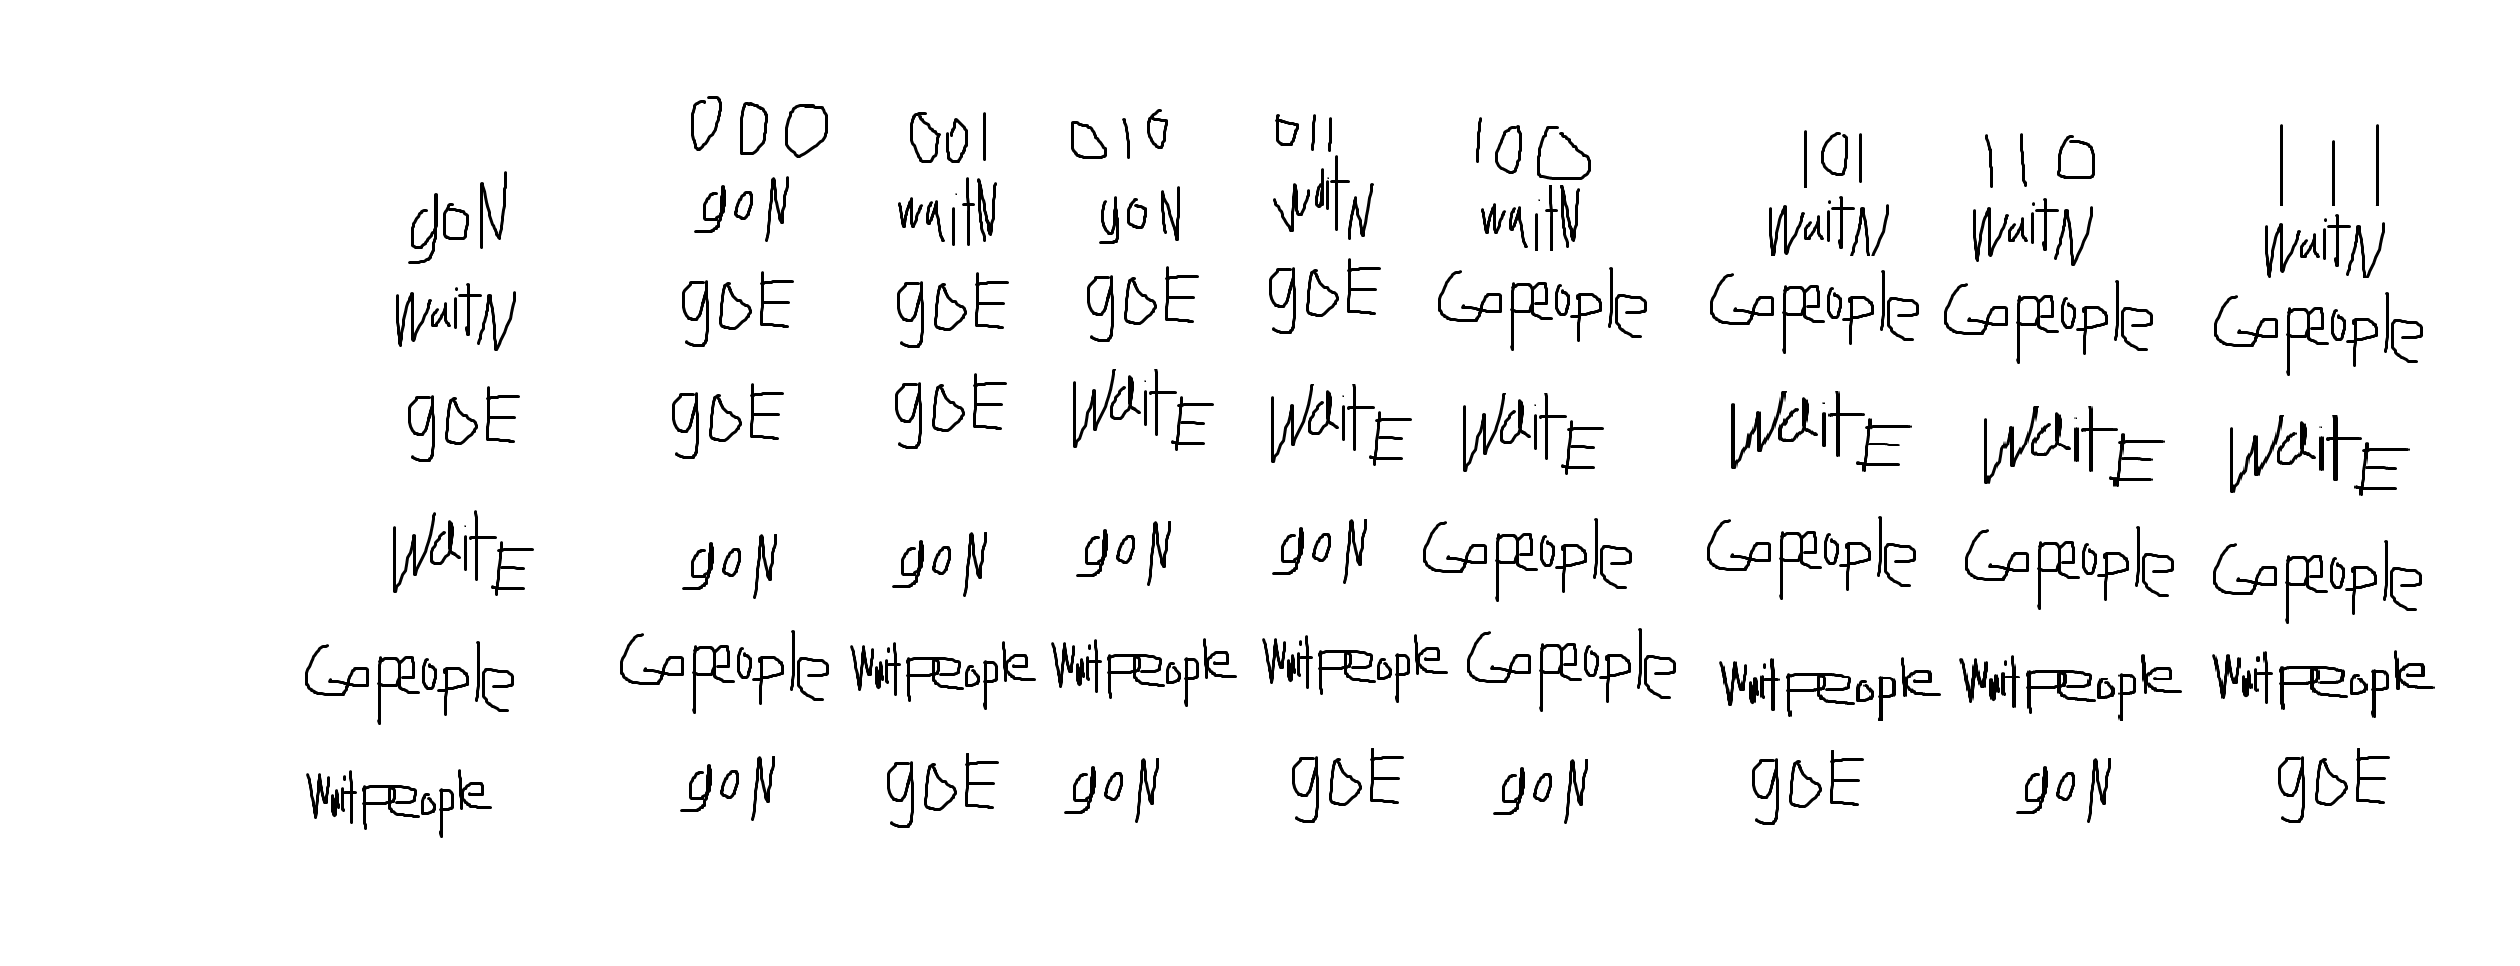 000 001 010 011 100 101 110 111
goN goN waitN goN waitN waitN waitN waitN waitN
waitN goE goE goE goE Gopeople Gopeople Gopeople Gopeople
goE goE goE WaitE WaitE WaitE WaitE WaitE WaitE
WaitE goN goN goN goN Gopeople Gopeople Gopeople Gopeople
Gopeople Gopeople Waitpeople Waitpeople Waitpeople Gopeople Waitpeople Waitpeople Waitpeople
Waitpeople goN goE goN goE goN goE goN goE